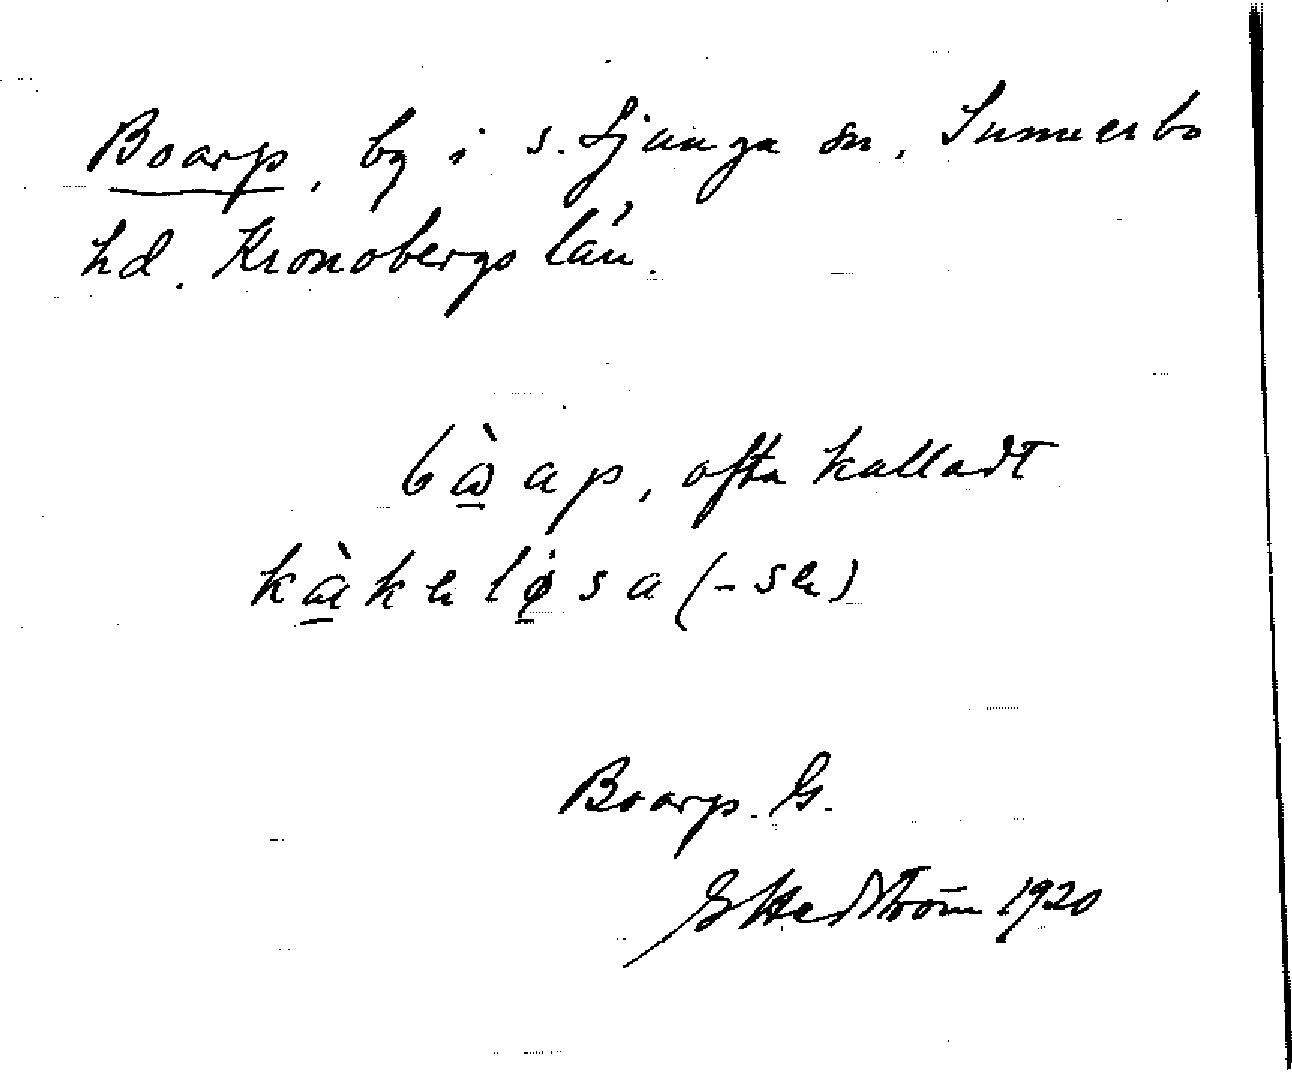 Boarp, by i S. Ljunga sn, Sunnerbo
hd. Kronobergs län.
bὼ̲ap, ofta kalladt
kàkelø̲sa (-sa)
Boarp. G.
G Hedström 1920